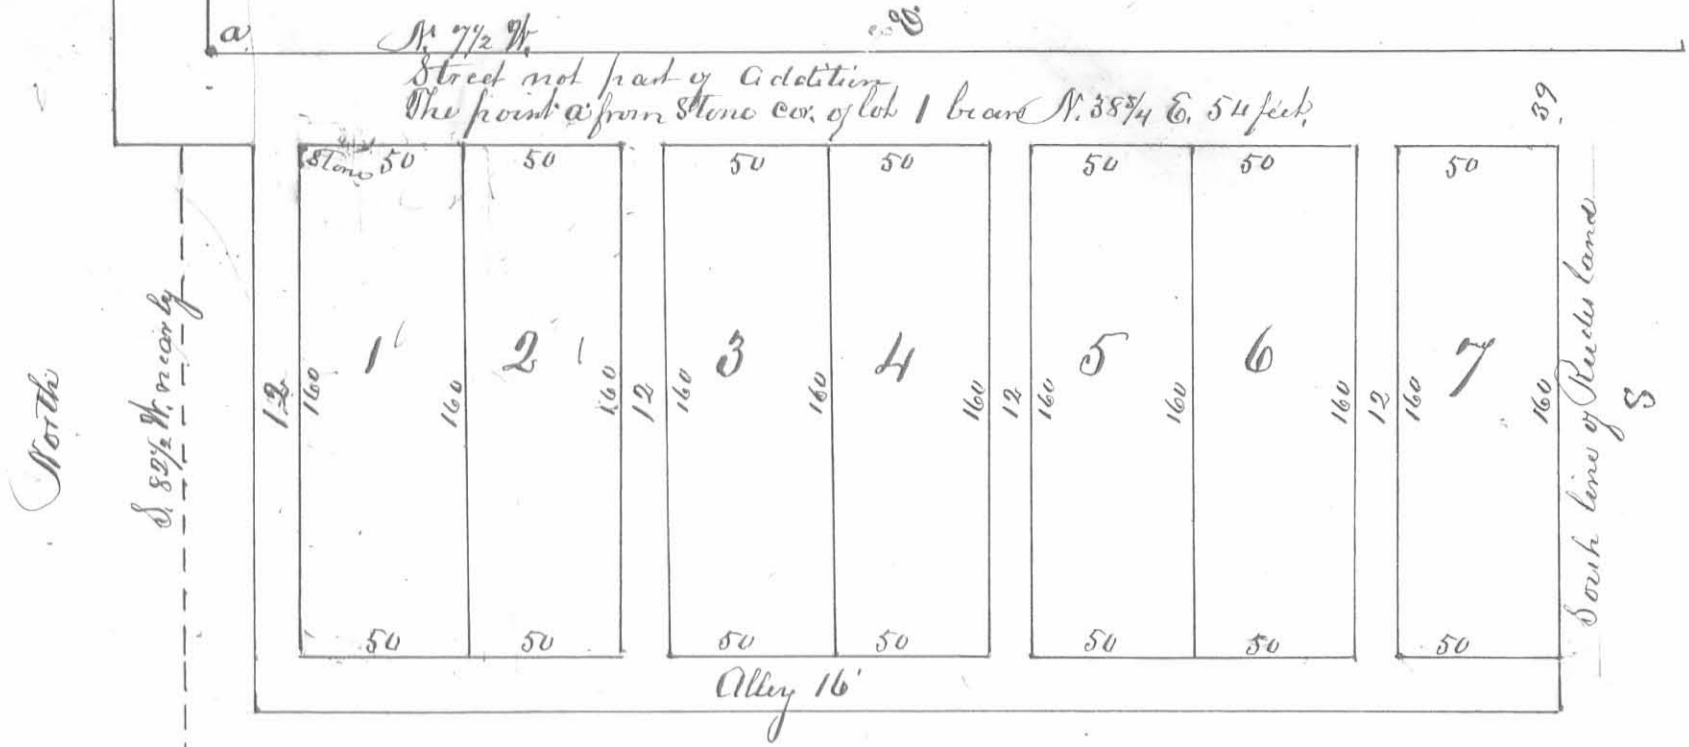 a
N. 7½ W.
E.
Street not part of addition
The point a from Stone cor. of lot 1 bears N. 38¾ E. 54 feet.
39.
Stone 50 50 50 50 50 50 50
North
S. 82½ W. nearly
12 160 1 160 2 160 12 160 3 160 4 160 12 160 5 160 6 160 12 160 7 160
South line of Rudes land
S
50 50 50 50 50 50 50
Alley 16'